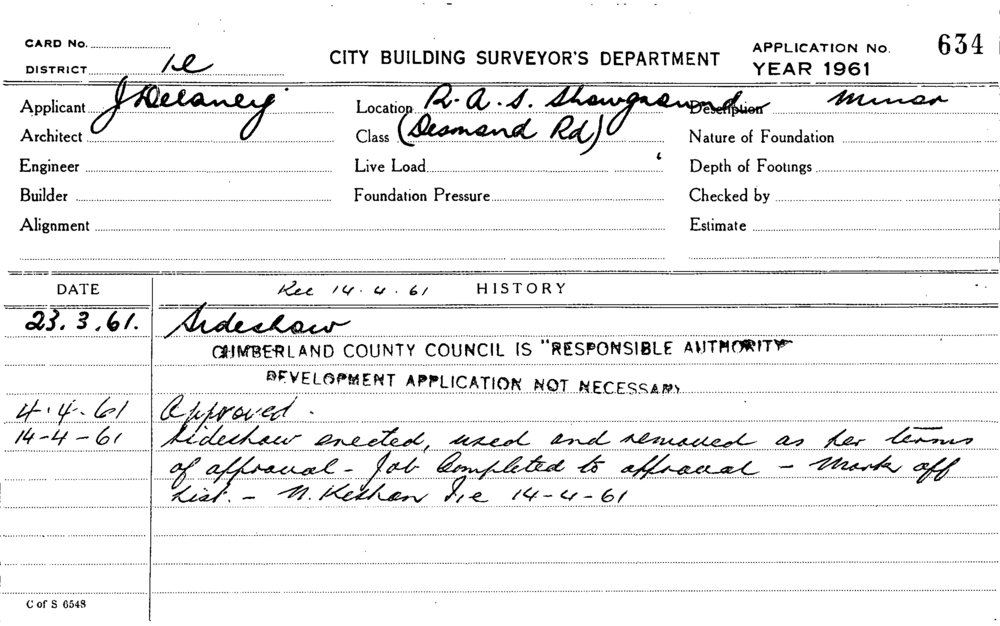 CARD No.
DISTRICT 1e
CITY BUILDING SURVEYOR'S DEPARTMENT
APPLICATION No. 634
YEAR 1961
Applicant J Delaney
Location R.A.S. Showground
Description Minor
Architect
Class (Desmond Rd)
Nature of Foundation
Engineer
Live Load
Depth of Footings
Builder
Foundation Pressure
Checked by
Alignment
Estimate
DATE
Rec 14.4.61 HISTORY
23.3.61. Sideshow
CUMBERLAND COUNTY COUNCIL IS "RESPONSIBLE AUTHORITY"
DEVELOPMENT APPLICATION NOT NECESSARY
4.4.61 Approved.
14-4-61 Sideshow erected, used and removed as per terms
of approval - Job Completed to approval - Mark off
List. - 14-4-61
C of S 6548